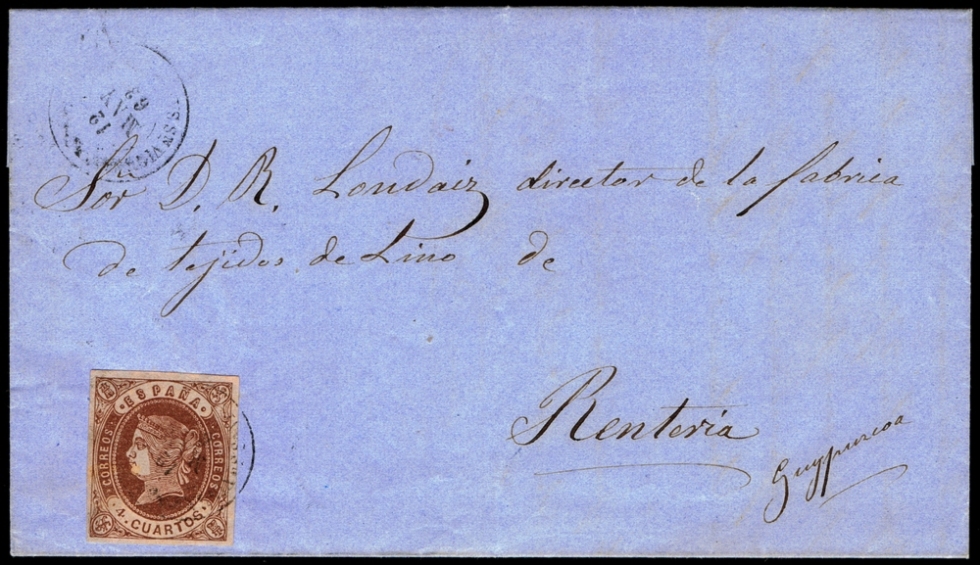 12
MAY
63
Sor D. R. Londaiz director de la fabrica
de tejidos de Lino de
Renteria
Guypuzcoa
ESPAÑA
CORREOS
CORREOS
4 CUARTOS